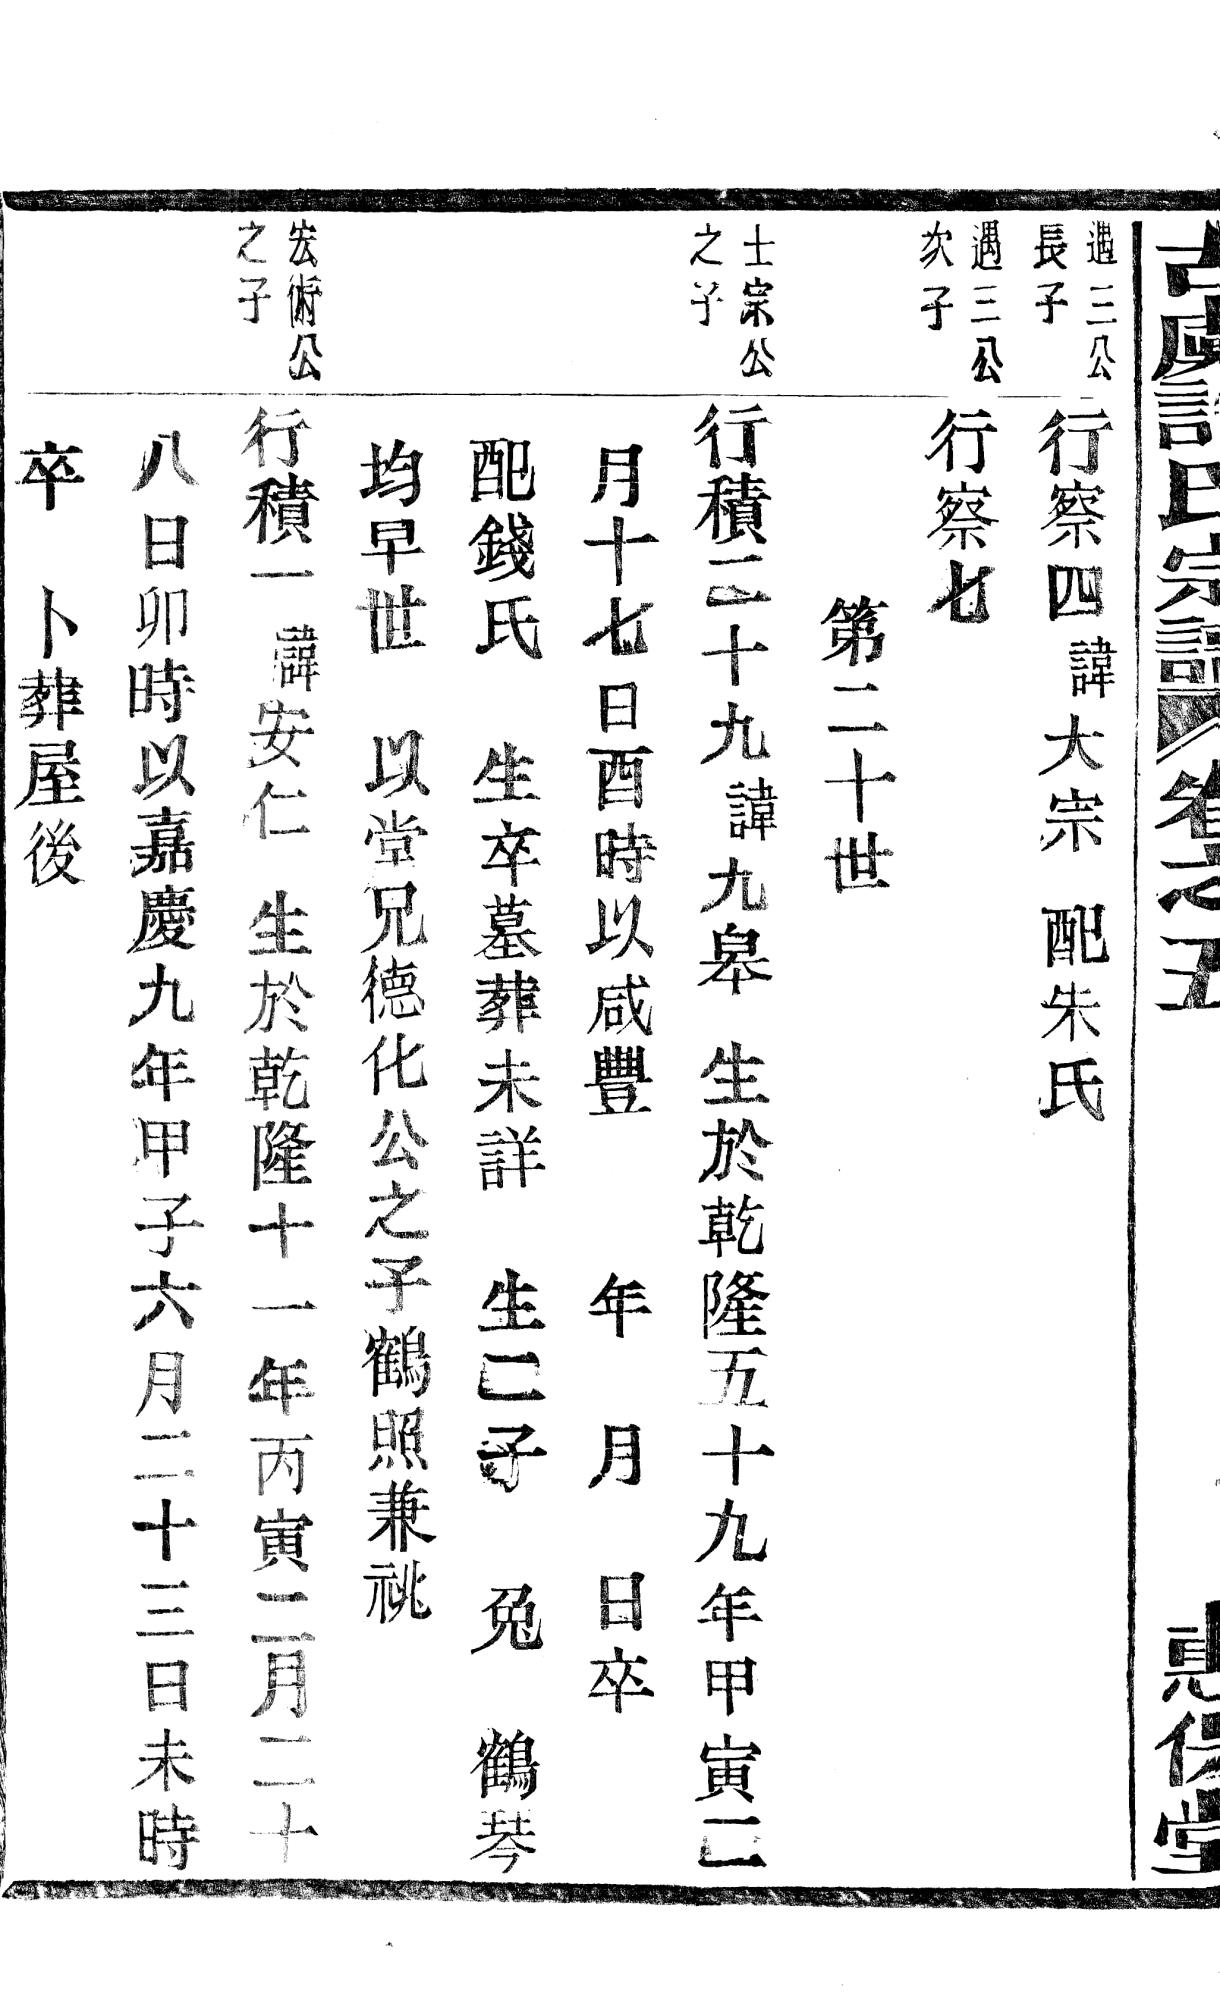 古虞許氏宗譜 卷之五 惠保堂
遇三公長子
行察四 諱大宗 配朱氏
遇三公次子
行察七
第二十世
士宗公之子
行積二十九 諱九皋 生於乾隆五十九年甲寅二
月十七日酉時以咸豐 年 月 日卒
配錢氏 生卒墓葬未詳 生二子 兔 鶴琴
均早世 以堂兄德化公之子鶴照兼祧
宏術公之子
行積一 諱安仁 生於乾隆十一年丙寅二月二十
八日卯時以嘉慶九年甲子六月二十三日未時
卒 卜葬屋後